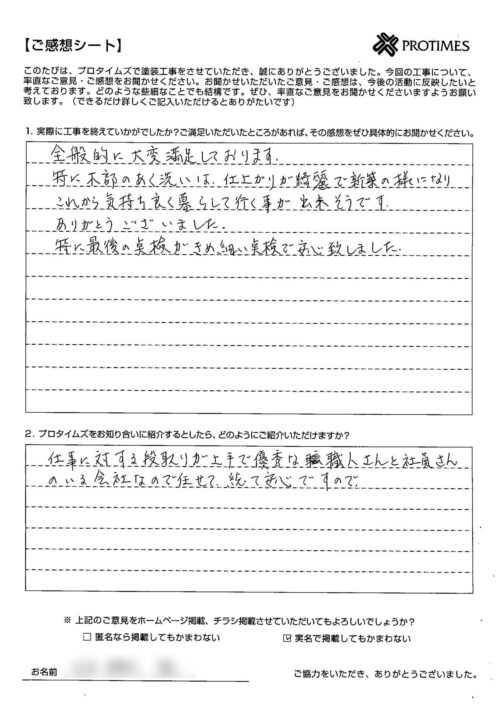 【ご感想シート】
PROTIMES
このたびは、プロタイムズで塗装工事をさせていただき、誠にありがとうございました。今回の工事について、
率直なご意見・ご感想をお聞かせください。お聞かせいただいたご意見・ご感想は、今後の活動に反映したいと
考えております。どのような些細なことでも結構です。ぜひ、率直なご意見をお聞かせくださいますようお願い
致します。（できるだけ詳しくご記入いただけるとありがたいです）
1. 実際に工事を終えていかがでしたか?ご満足いただいたところがあれば、その感想をぜひ具体的にお聞かせください。
全般的に大変満足しております.
特に木部のあく洗いは、仕上がりが綺麗で新築の様になり
これから気持ち良く暮らして行く事が出来そうです.
ありがとうございました.
特に最後の点検がきめ細い点検で安心致しました.
2. プロタイムズをお知り合いに紹介するとしたら、どのようにご紹介いただけますか?
仕事に対する段取りが上手で優秀な職人さんと社員さん
のいる会社なので任せて、安心ですので.
※ 上記のご意見をホームページ掲載、チラシ掲載させていただいてもよろしいでしょうか?
□ 匿名なら掲載してもかまわない
☑ 実名で掲載してもかまわない
お名前
ご協力をいただき、ありがとうございました。